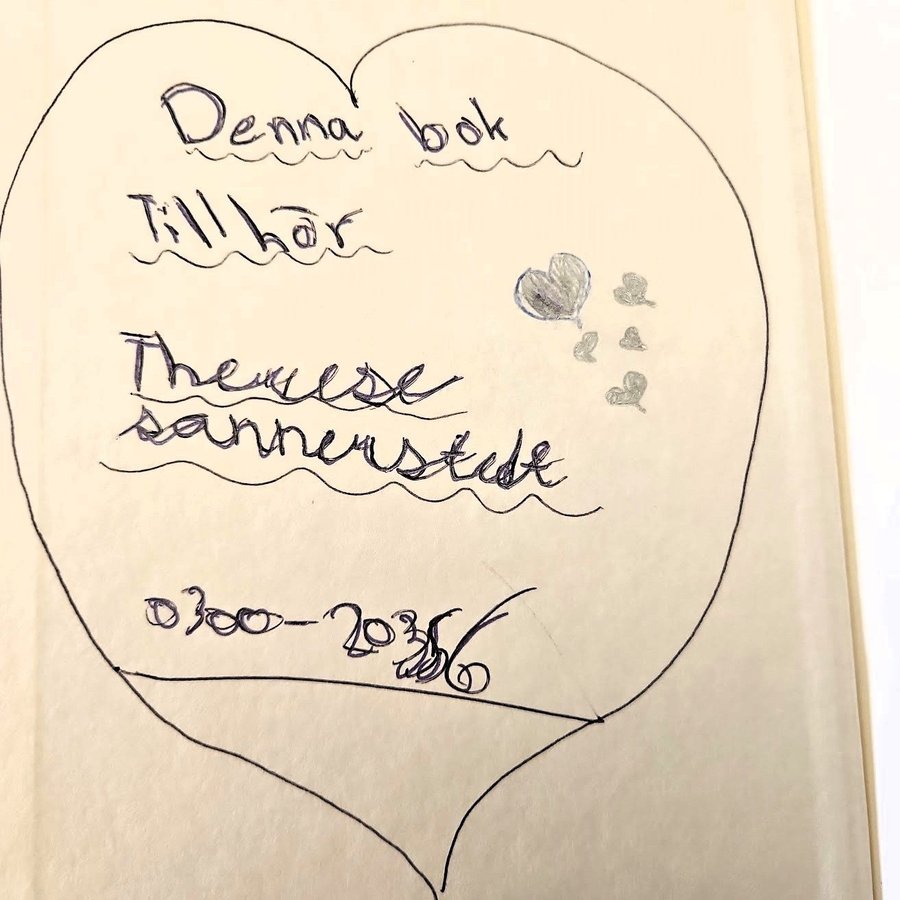 Denna bok
Tillhör
Therese
sannerstedt
0300-20356